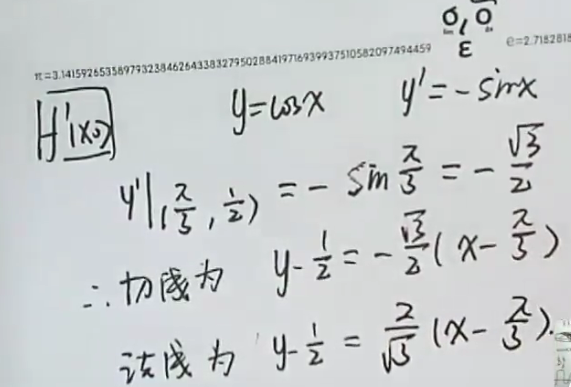 σ, σ
ε
π=3.14159265358979323846264338327950288419716939937510582097494459 e=2.7182818
f'(x₀) y=cosx y'=-sinx
y'|(π/3, 1/2) = - sin π/3 = - √3/2
∴切线为 y-1/2=-√3/2(x-π/3)
法线为 y-1/2 = 2/√3 (x-π/3).